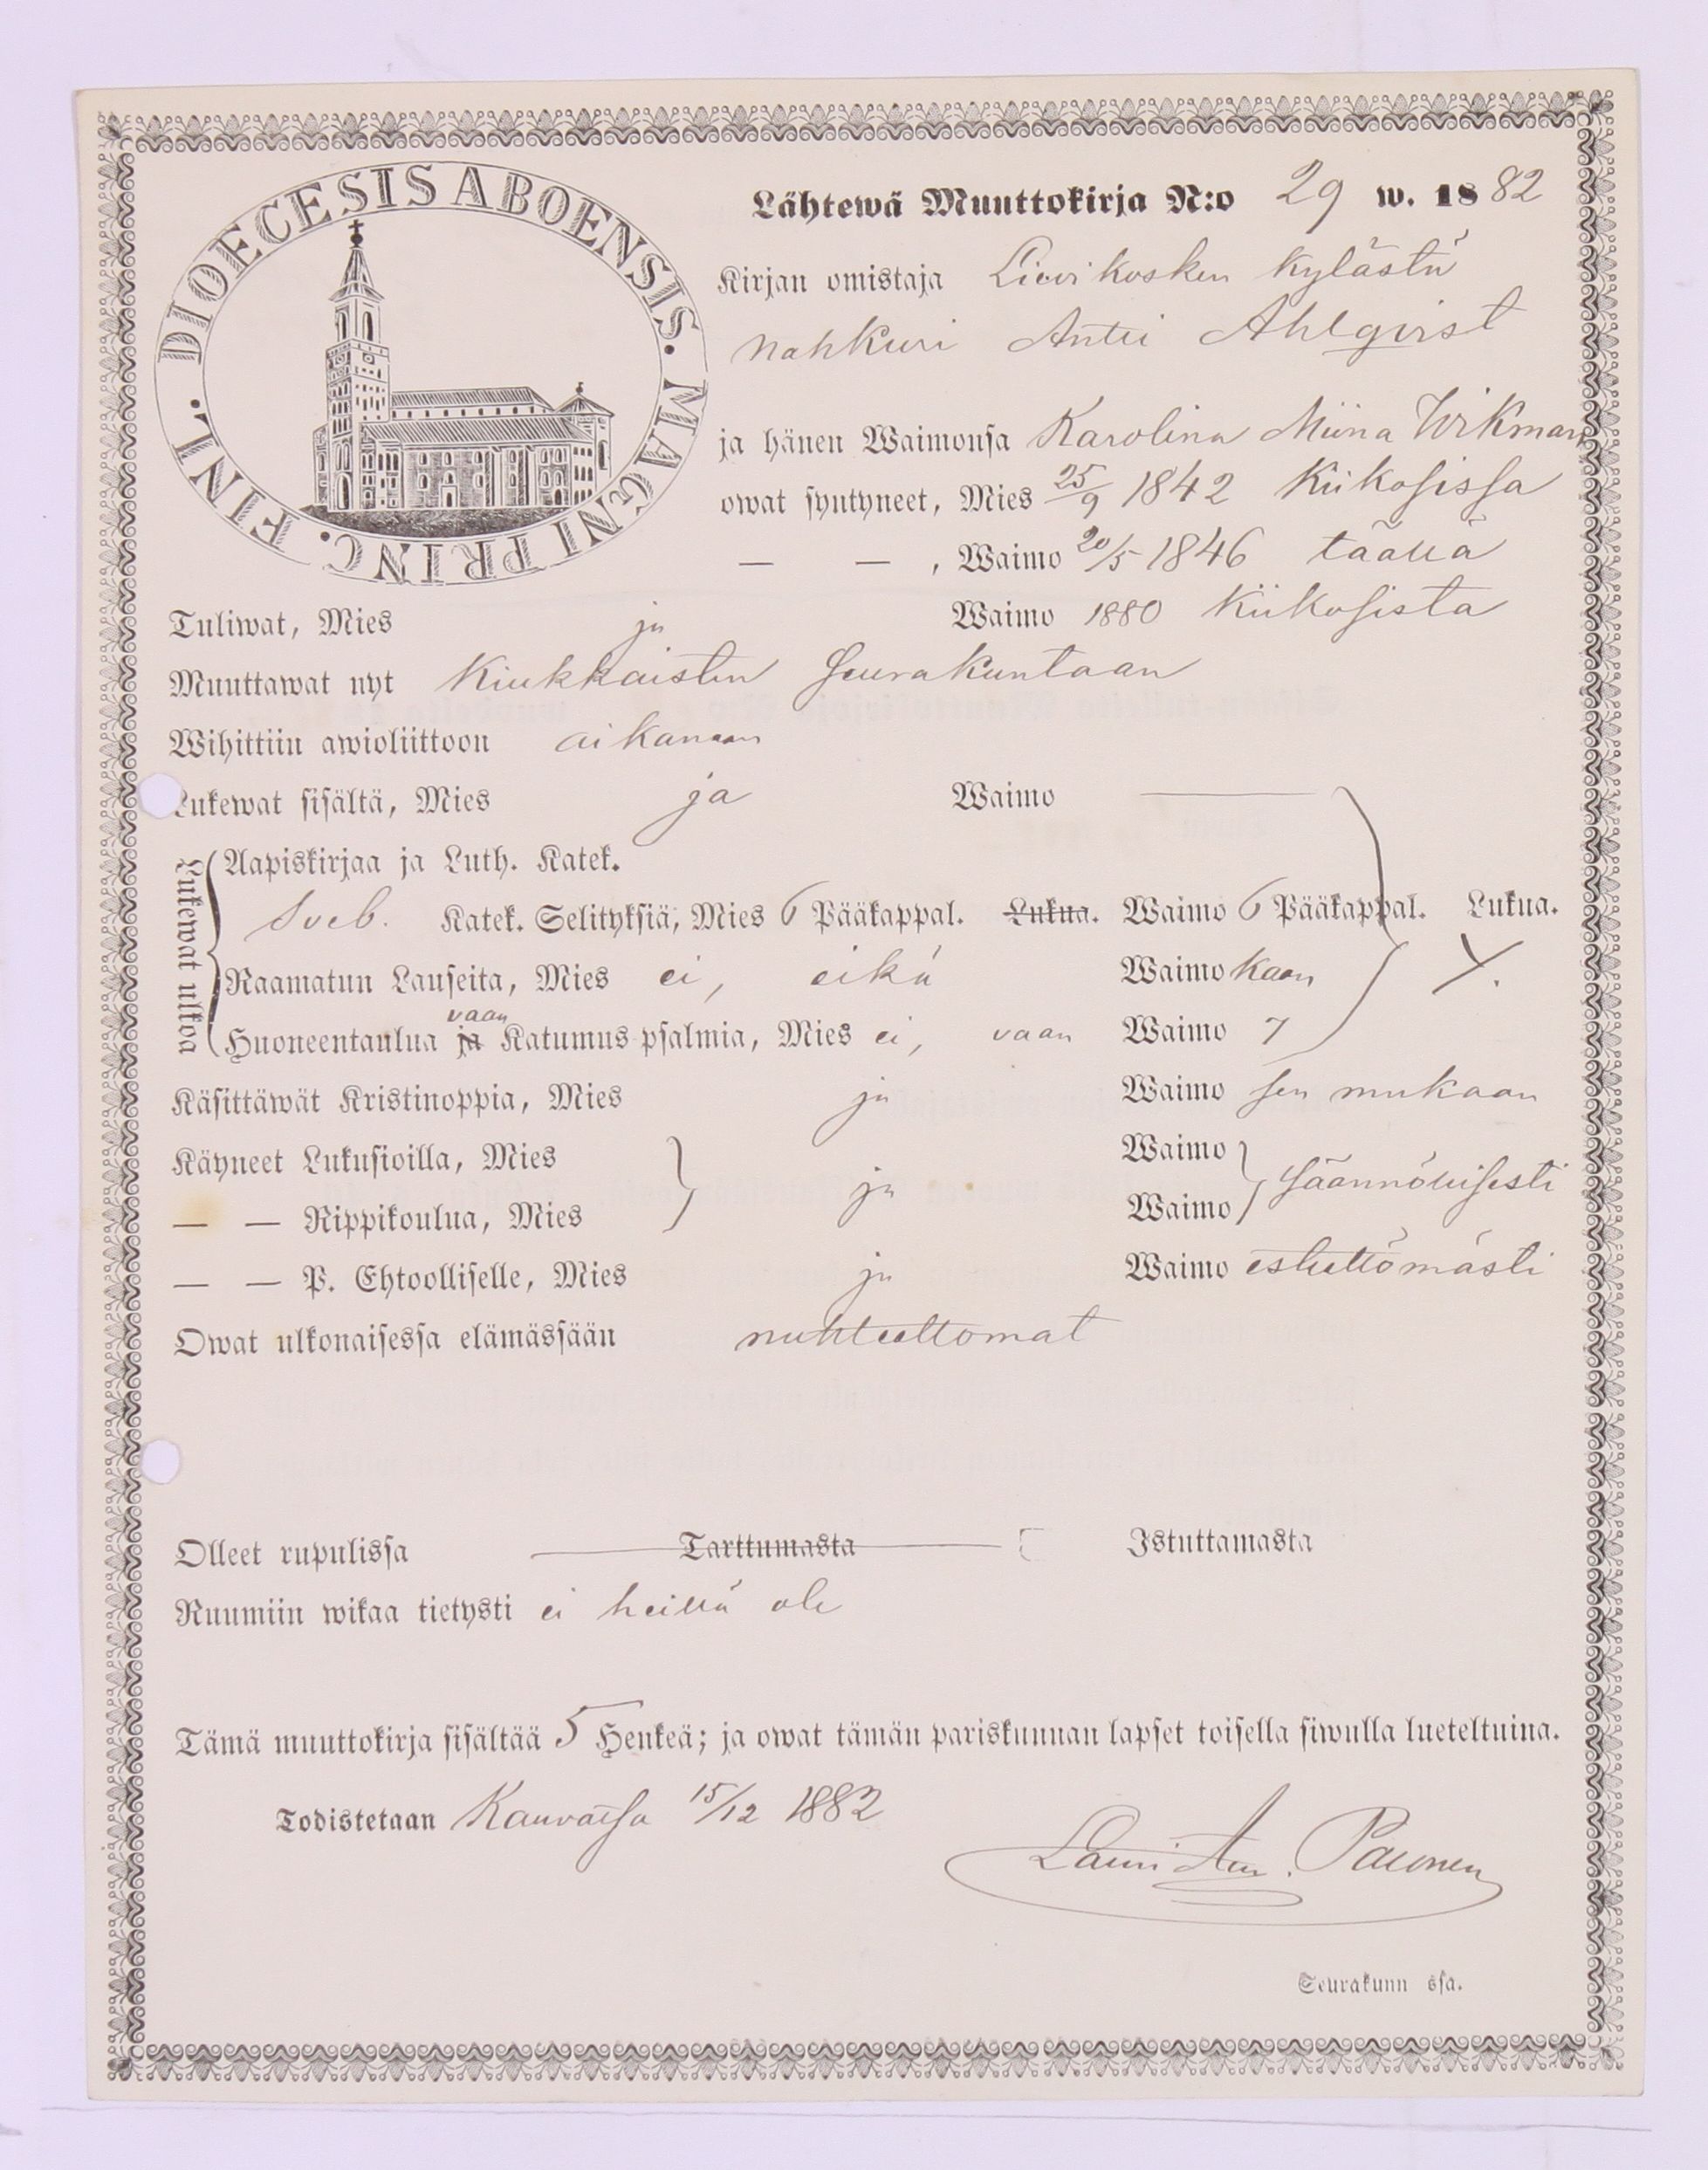 DIOECESIS ABOENSIS. MAGNI PRINC. FINL.
Lähtewä Muuttokirja N:o 29 w. 1882
Kirjan omistaja Lievikosken kylästä
nahkuri Antti Ahlqvist
ja hänen Waimonsa Karolina Miina Wikman
owat syntyneet, Mies 25/9 1842 Kiikosissa
— — , Waimo 20/5 1846 täällä
Tuliwat, Mies ja Waimo 1880 Kiikosista
Muuttawat nyt Kiukkaisten seurakuntaan
Wihittiin awioliittoon aikanaan
Lukewat sisältä, Mies ja Waimo —
Lukewat ulkoa
Aapiskirjaa ja Luth. Katek.
Sveb. Katek. Selityksiä, Mies 6 Pääkappal. Lukua. Waimo 6 Pääkappal. Lukua.
Raamatun Lauseita, Mies ei, eikä Waimo kaan
vaan
Huoneentaulua ja Katumus-psalmia, Mies ei, vaan Waimo 7
Käsittäwät Kristinoppia, Mies ja Waimo sen mukaan
Käyneet Lukusioilla, Mies Waimo
ja säännöllisesti
— — Rippikoulua, Mies Waimo
— — P. Ehtoolliselle, Mies ja Waimo esteettömästi
Owat ulkonaisessa elämässään nuhteettomat
Olleet rupulissa Tarttumasta Istuttamasta
Ruumiin wikaa tietysti ei heillä ole
Tämä muuttokirja sisältää 5 Henkeä; ja owat tämän pariskunnan lapset toisella siwulla lueteltuina.
Todistetaan Kauvatsa 15/12 1882
Lauri Paunen
Seurakunn ssa.